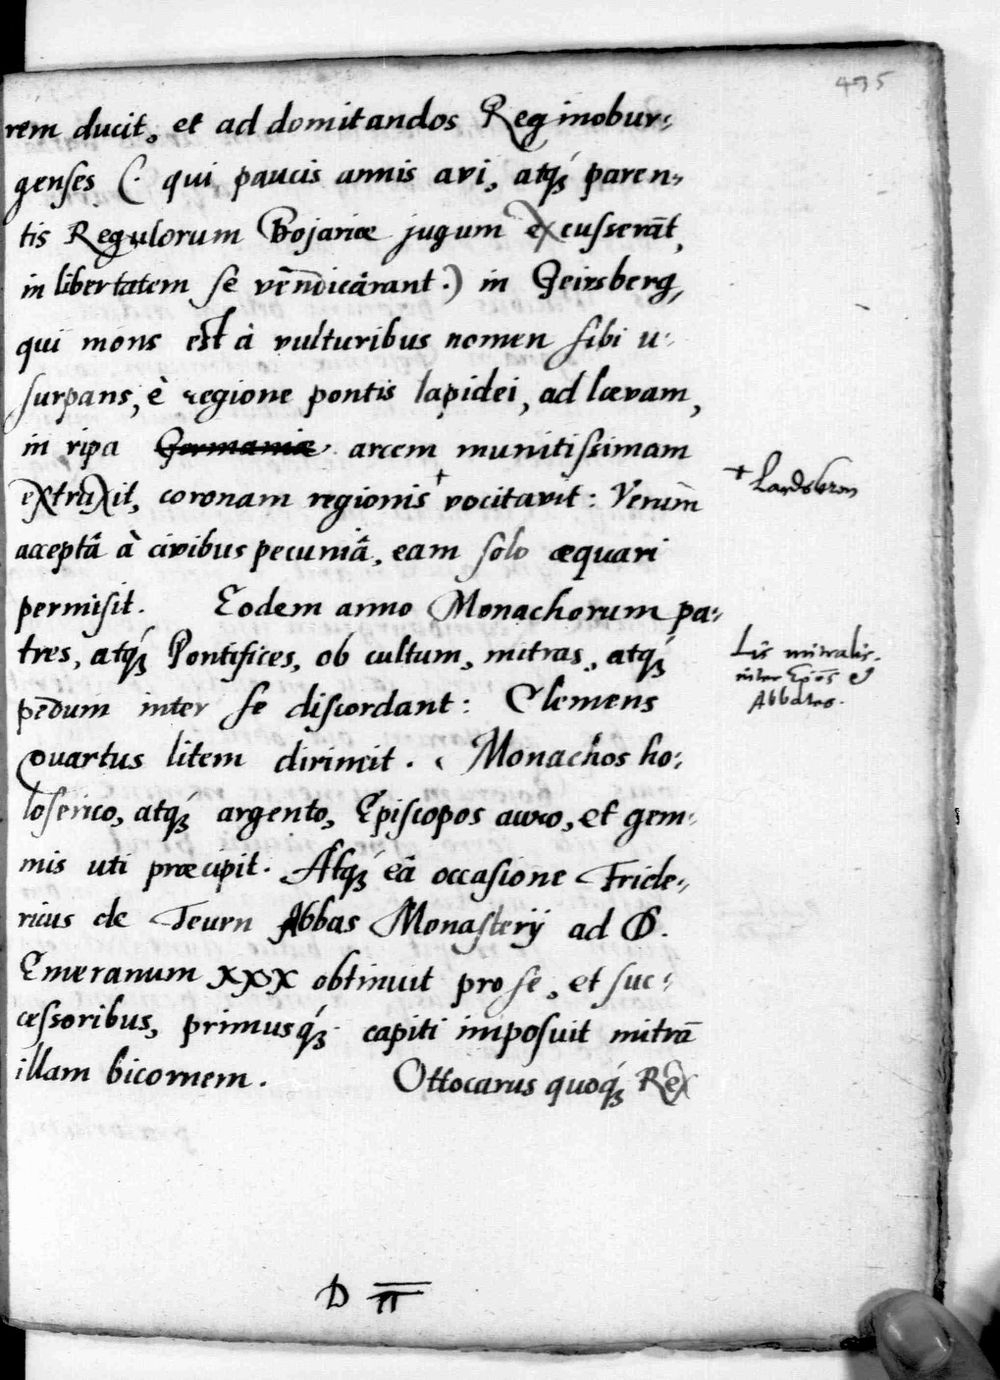 435
rem ducit, et ad domitandos Reginobur-
genses (. qui paucis annis avi, atq́ꝫ paren-
tis Regulorum Bojariæ jugum excusserāt,
in libertatem se vēndicârant.) in Geirsberg,
qui mons est à vulturibus nomen sibi u-
surpans, è regione pontis lapidei, ad lævam,
in ripa Germaniæ arcem munitissimam
extruxit, coronam regionis + vocitavit: Verum
acceptâ à civibus pecuniâ, eam solo æquari
permisit. Eodem anno Monachorum pa-
tres, atq́ꝫ Pontifices, ob cultum, mitras, atq́ꝫ
pedum inter se discordant: Clemens
Quartus litem dirimit. Monachos ho-
loserico, atq́ꝫ argento, Episcopos auro, et gem-
mis uti præcipit. Atq́ꝫ eâ occasione Fride-
ricus de Teurn Abbas Monasterij ad D.
Emeranum xxx obtinuit pro se, et suc-
cessoribus, primusq́ꝫ capiti imposuit mitrā
illam bicornem. Ottocarus quoq́ꝫ Rex
+ Landskron
Lis mitralis
inter Ep̄os et
Abbates.
D II